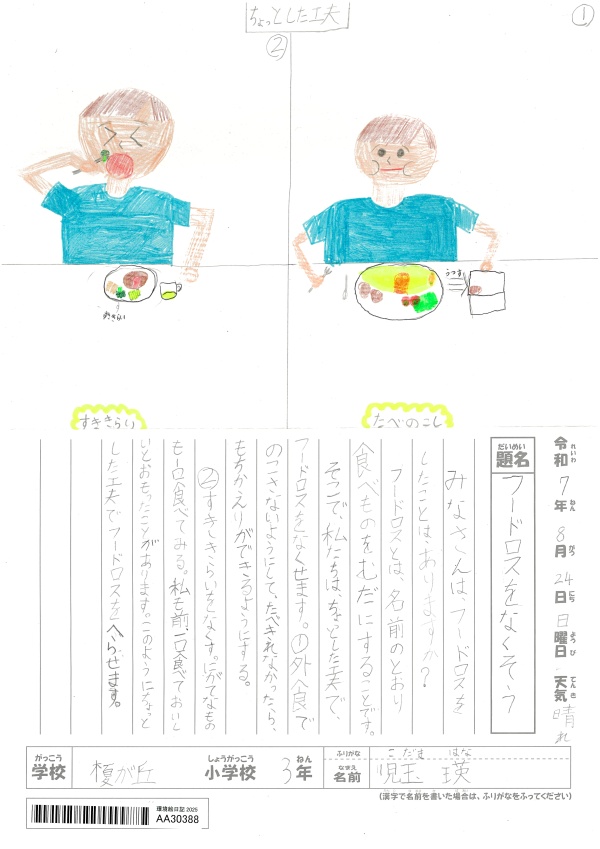 ちょっとした工夫
①
②
おきらい
うつす
すききらい
たべのこし
令和7年8月24日日曜日天気晴れ
れいわ ねん がつ にち ようび てんき
だいめい
題名
フードロスをなくそう
みなさんは、フードロスを
したことは、ありますか?
フードロスとは、名前のとおり
食べものをむだにすることです。
そこで、私たちは、ちょっとした工夫で、
フードロスをなくせます。①外食で
のこさないようにして、たべきれなかったら、
もちかえりができるようにする。
②すききらいをなくす。にがてなもの
も一口食べてみる。私も前一口食べておいし
いとおもったことがあります。このようにちょっと
した工夫でフードロスをへらせます。
がっこう
学校
榎が丘
しょうがっこう
小学校
3年
ねん
ふりがな
こだま はな
なまえ
名前
児玉 瑛
(漢字で名前を書いた場合は、ふりがなをふってください)
環境絵日記2025
AA30388